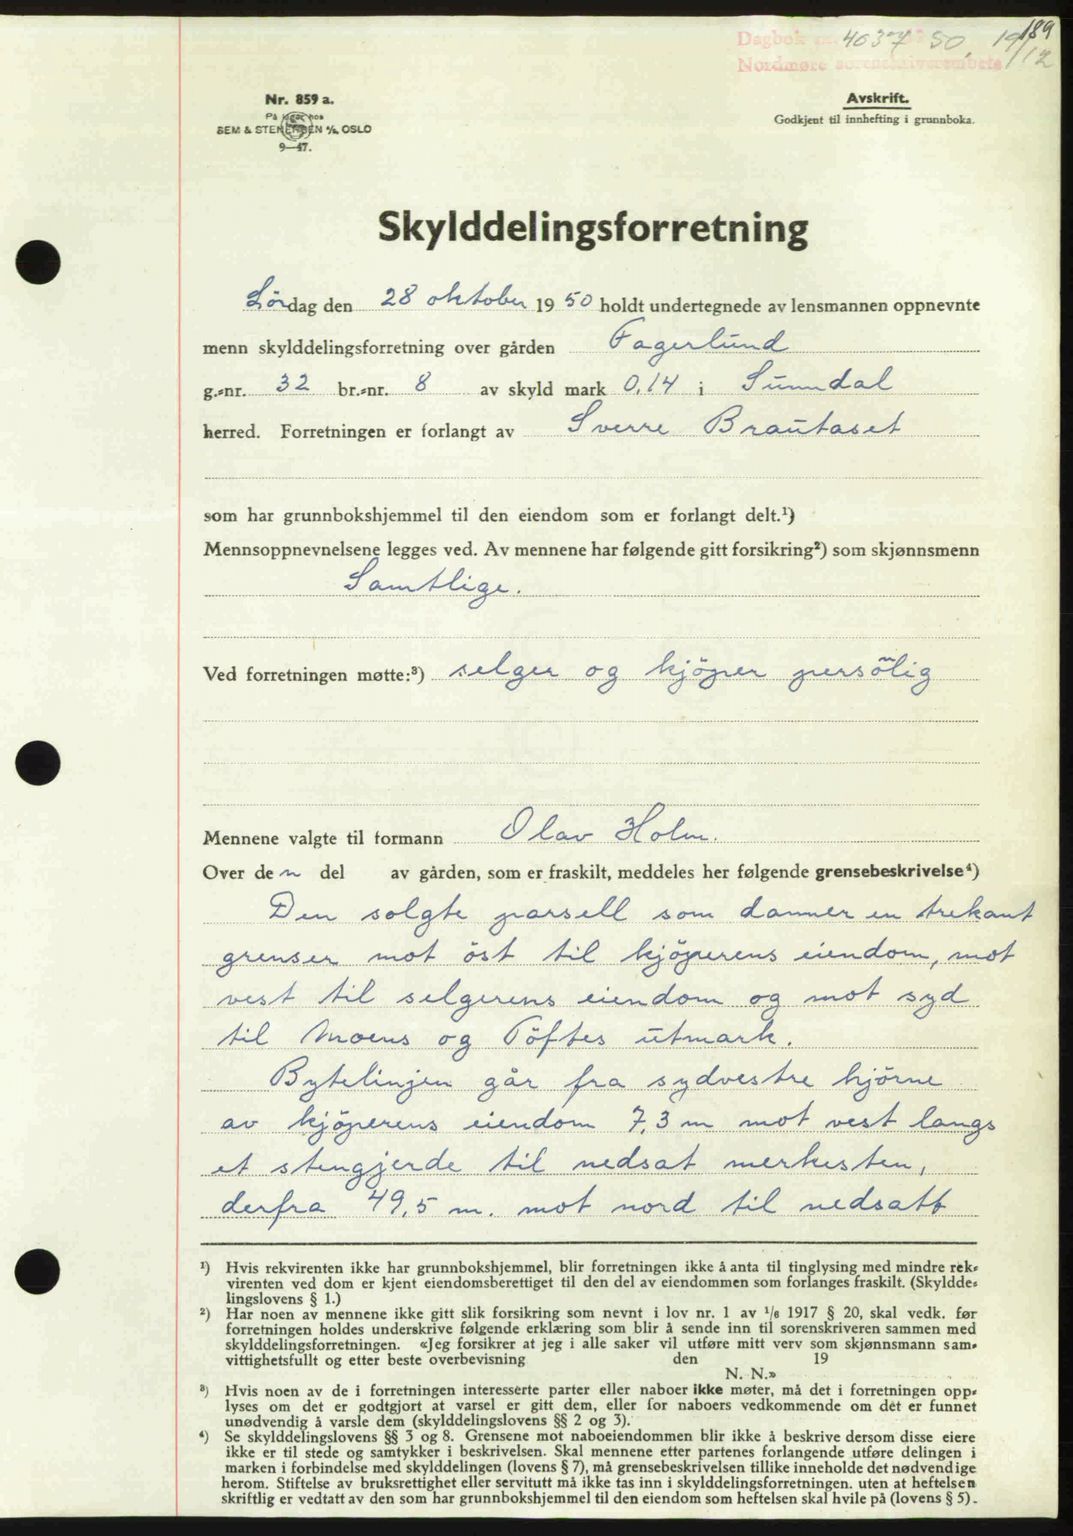 189
Dagbok nr. 4037 50, 19/12
Nordmøre sorenskriverembete
Nr. 859 a.
På lager hos
SEM & STENERSEN A/S, OSLO
9—47.
Avskrift.
Godkjent til innhefting i grunnboka.
Skylddelingsforretning
Lördag den 28 oktober 1950 holdt undertegnede av lensmannen oppnevnte
menn skylddelingsforretning over gården Fagerlund
g.-nr. 32 br.-nr. 8 av skyld mark 0,14 i Sunndal
herred. Forretningen er forlangt av Sverre Brautaset
som har grunnbokshjemmel til den eiendom som er forlangt delt.¹)
Mennsoppnevnelsene legges ved. Av mennene har følgende gitt forsikring²) som skjønnsmenn
Samtlige.
Ved forretningen møtte:³) selger og kjöper persölig
Mennene valgte til formann Olav Holm.
Over den del av gården, som er fraskilt, meddeles her følgende grensebeskrivelse⁴)
Den solgte parsell som danner en trekant
grenser mot öst til kjöperens eiendom, mot
vest til selgerens eiendom og mot syd
til Moens og Töftes utmark.
Bytelinjen går fra sydvestre hjörne
av kjöperens eiendom 7,3 m mot vest langs
et stengjerde til nedsat merkesten,
derfra 49,5 m. mot nord til nedsatt
¹) Hvis rekvirenten ikke har grunnbokshjemmel, blir forretningen ikke å anta til tinglysing med mindre rek-
virenten ved dom er kjent eiendomsberettiget til den del av eiendommen som forlanges fraskilt. (Skyldde-
lingslovens § 1.)
²) Har noen av mennene ikke gitt slik forsikring som nevnt i lov nr. 1 av ¹/₆ 1917 § 20, skal vedk. før
forretningen holdes underskrive følgende erklæring som blir å sende inn til sorenskriveren sammen med
skylddelingsforretningen. «Jeg forsikrer at jeg i alle saker vil utføre mitt verv som skjønnsmann sam-
vittighetsfullt og etter beste overbevisning den 19
N. N.»
³) Hvis noen av de i forretningen interesserte parter eller naboer ikke møter, må det i forretningen opp-
lyses om det er godtgjort at varsel er gitt dem, eller for naboers vedkommende om det er funnet
unødvendig å varsle dem (skylddelingslovens §§ 2 og 3).
⁴) Se skylddelingslovens §§ 3 og 8. Grensene mot naboeiendommen blir ikke å beskrive dersom disse eiere
ikke er til stede og samtykker i beskrivelsen. Skal mennene etter partenes forlangende utføre delingen i
marken i forbindelse med skylddelingen (lovens § 7), må grensebeskrivelsen tillike inneholde det nødvendige
herom. Stiftelse av bruksrettighet eller servitutt må ikke tas inn i skylddelingsforretningen. uten at heftelsen
skriftlig er vedtatt av den som har grunnbokshjemmel til den eiendom som heftelsen skal hvile på (lovens § 5).